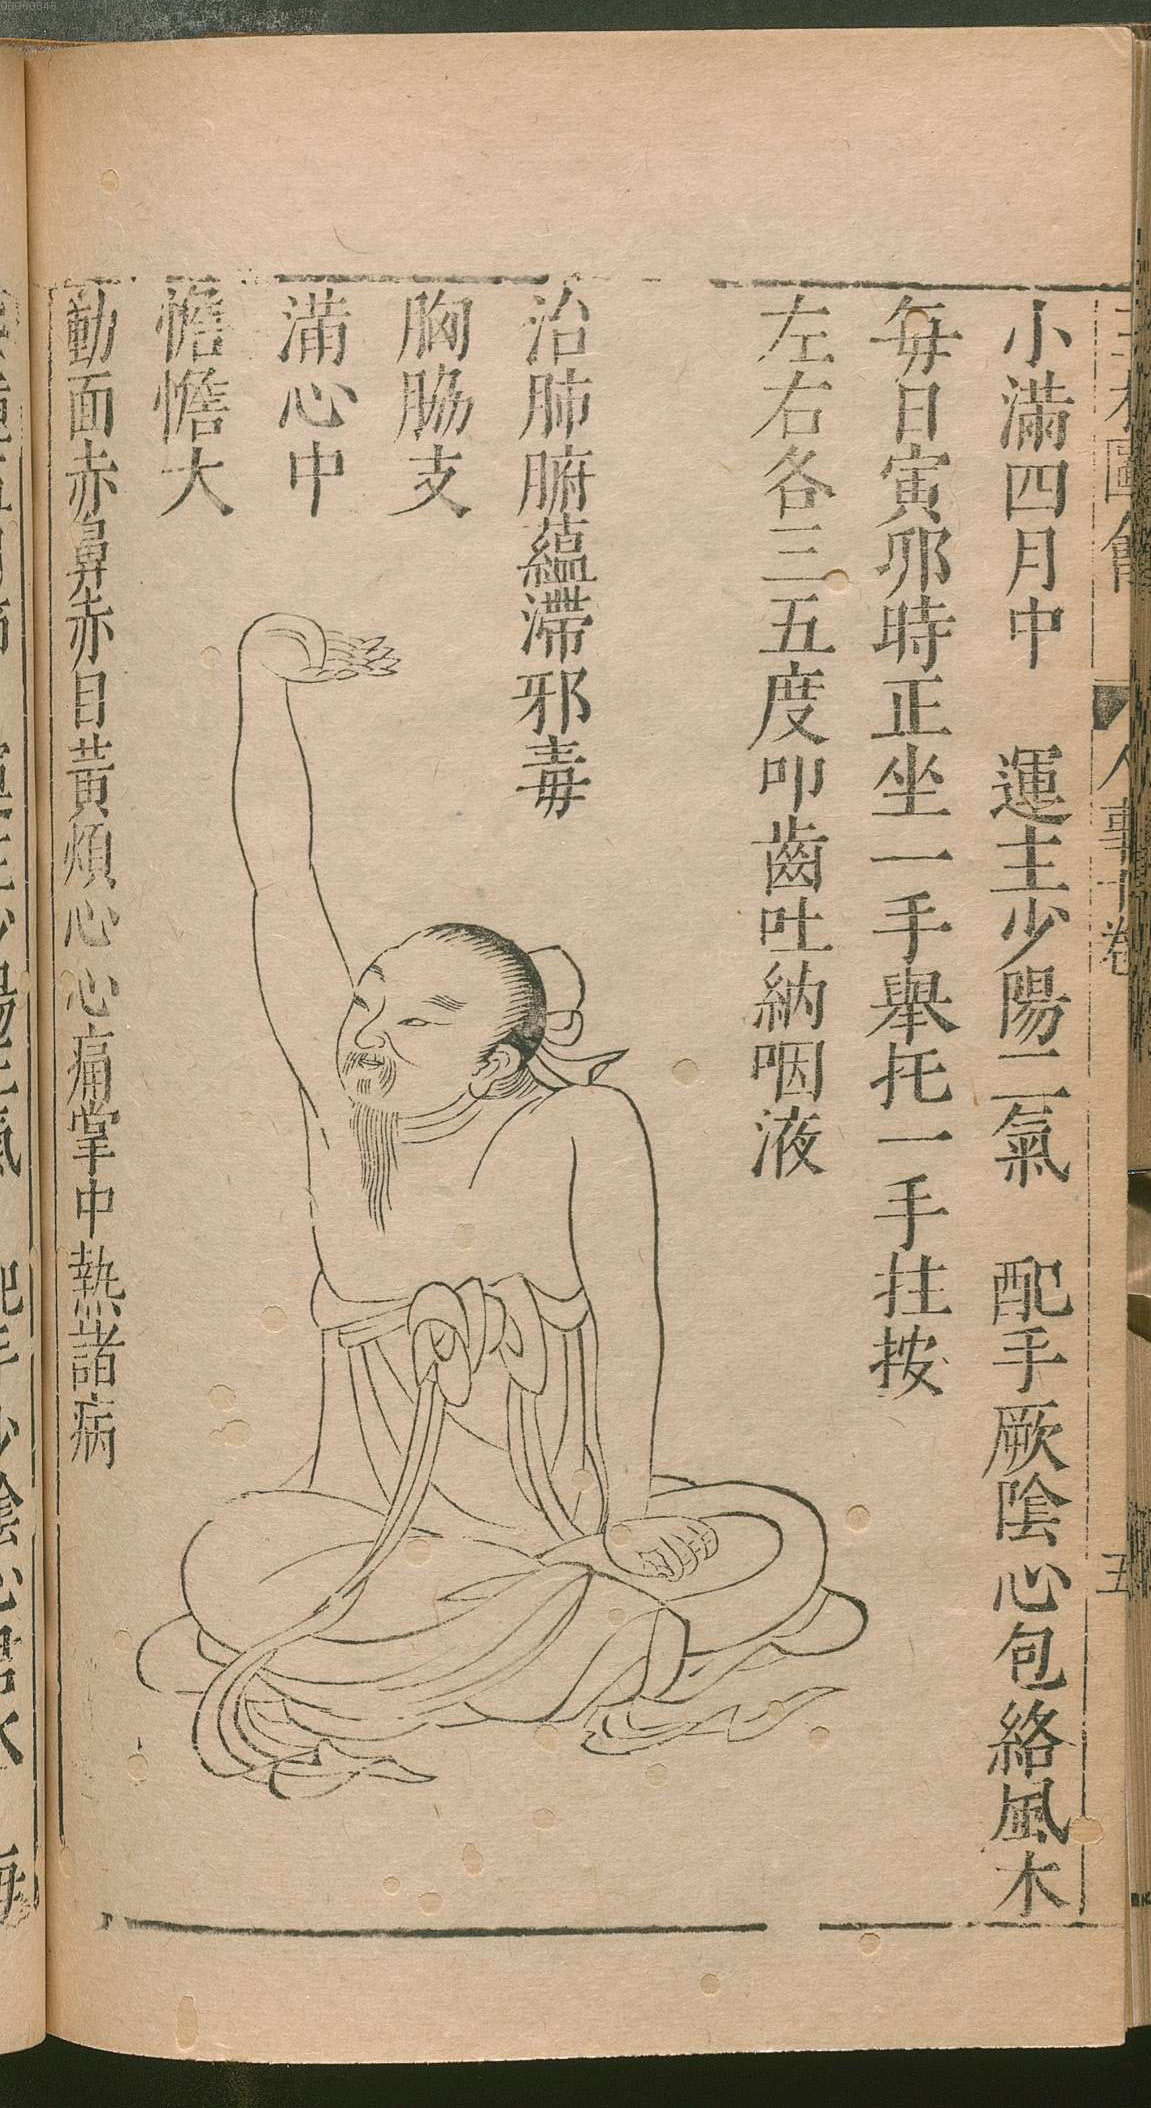 小滿四月中　運主少陽二氣　配手厥陰心包絡風木
每日寅卯時正坐一手舉托一手拄按
左右各三五度叩齒吐納咽液
治肺腑蘊滯邪毒
胸脇支
滿心中
憺憺大
動面赤鼻赤目黃煩心心痛掌中熱諸病